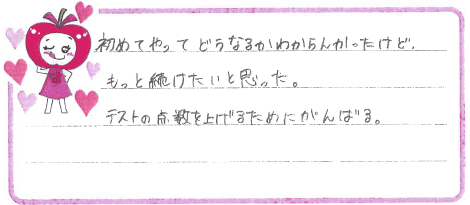 初めてやってどうなるかわからんかったけど、
もっと続けたいと思った。
テストの点数を上げるためにがんばる。